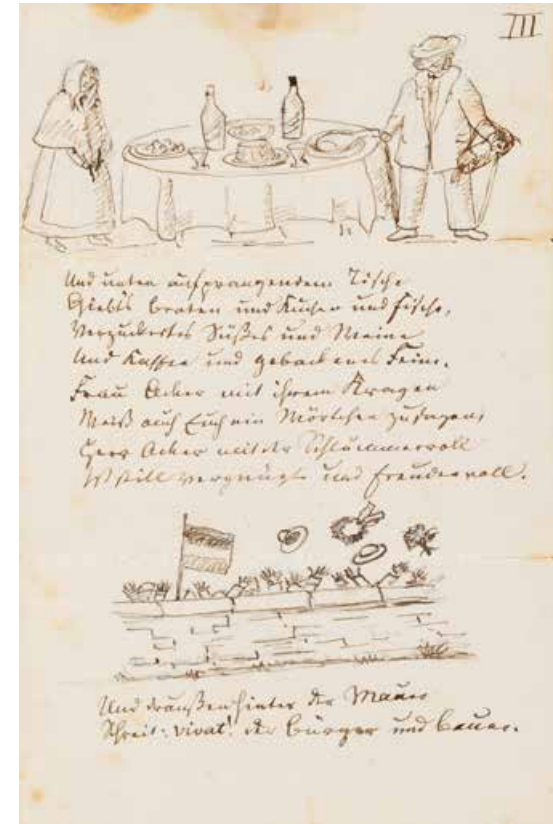 III
Und unten auf prangendem Tische
Giebt's braten und Kuchen und fische,
Verzuckertes Süßes und Weine
Und Kaffee und gebackenes Feine.
Frau Acker mit ihrem Kragen
Weiß auch Euch ein Wörtchen zu sagen,
Herr Acker mit der Schlummerroll
Ist still vergnügt und freudevoll.
Und draußen hinter der Mauer
Schreit: vivat! der bürger und bauer.